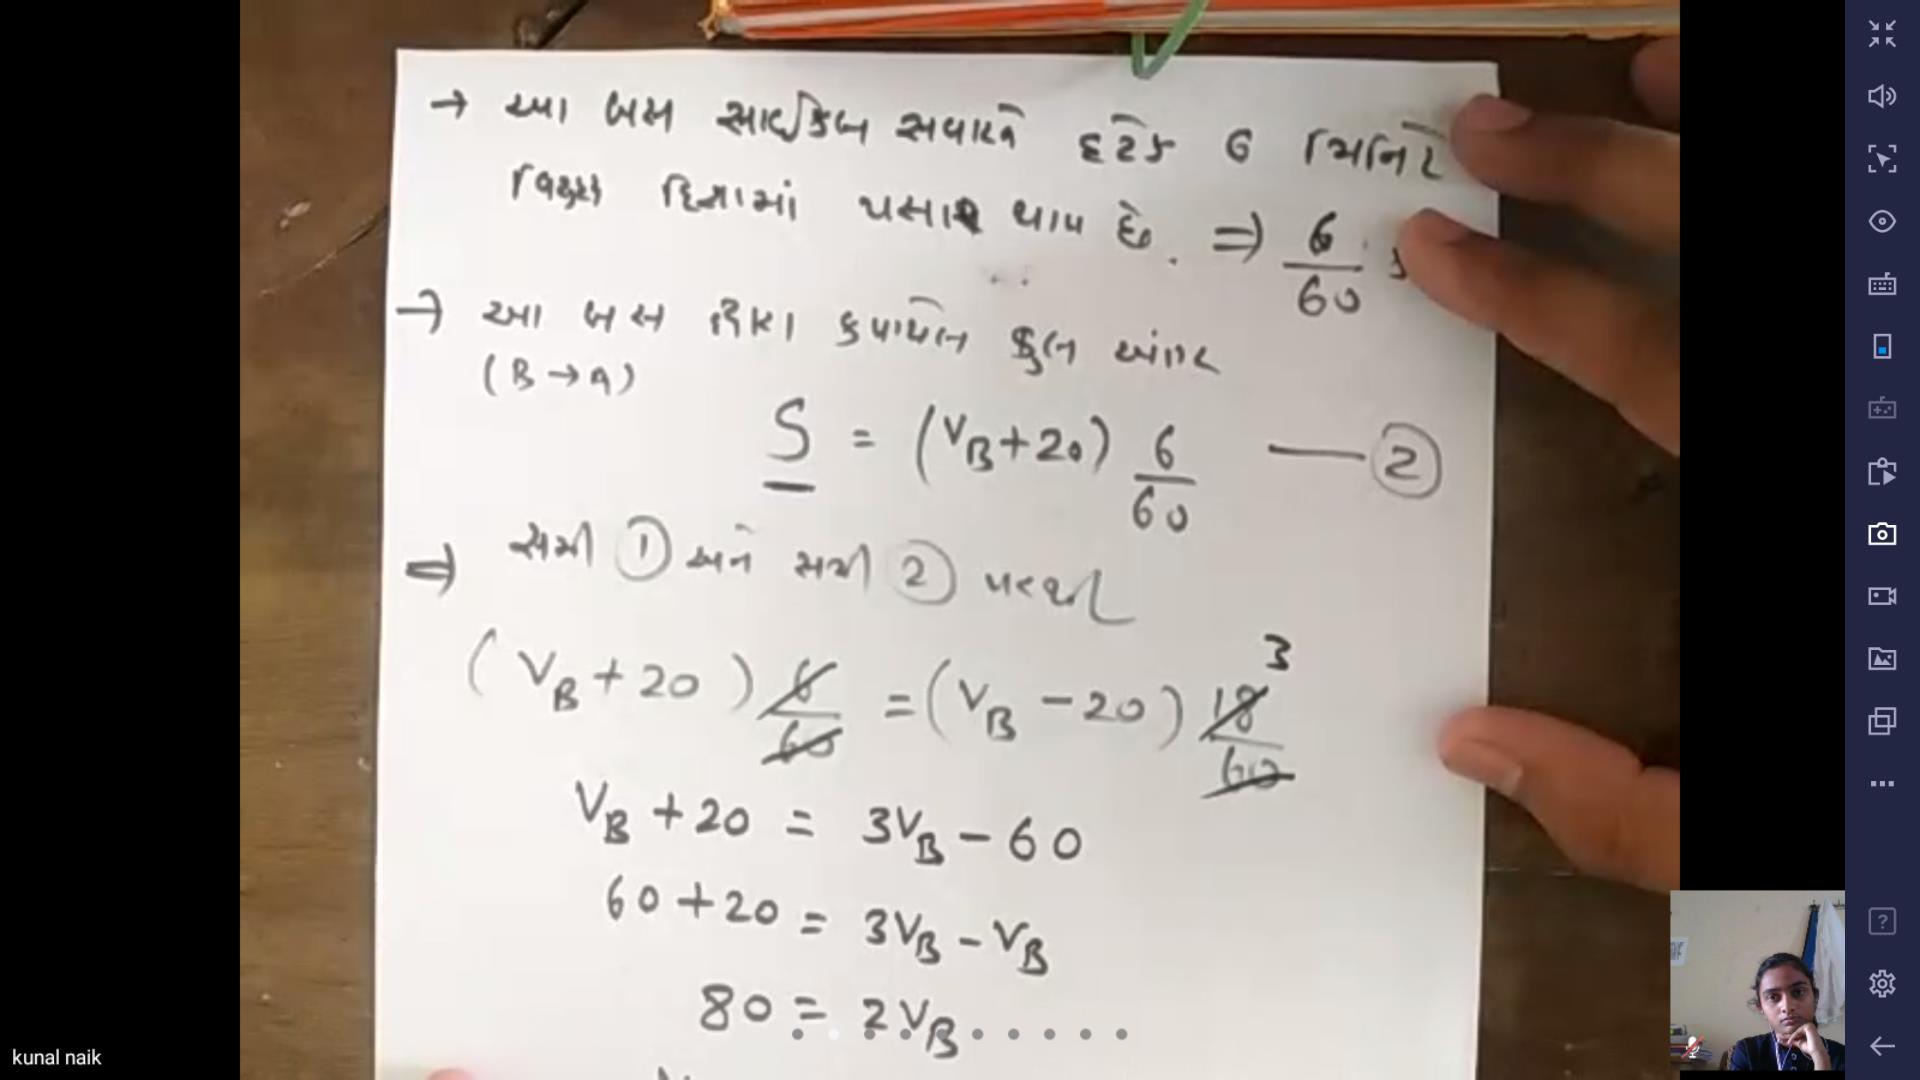 → આ બસ સાઈકલ સવારને દરેક 6 મિનિટે
વિરુદ્ધ દિશામાં પસાર થાય છે. ⇒ 6/60
→ આ બસ દ્વારા કપાયેલ કુલ અંતર
(B → A)
S = (V_B + 20) 6/60 — ②
⇒ સમી ① અને સમી ② પરથી
(V_B + 20) 6/60 = (V_B - 20) 18/60 3
V_B + 20 = 3V_B - 60
60 + 20 = 3V_B - V_B
80 = 2V_B
kunal naik